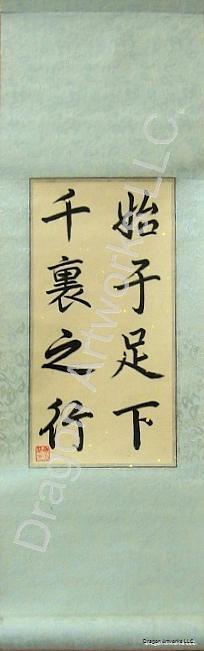 始于足下
千裏之行
Dragon Artworks LLC.
Dragon Artworks LLC